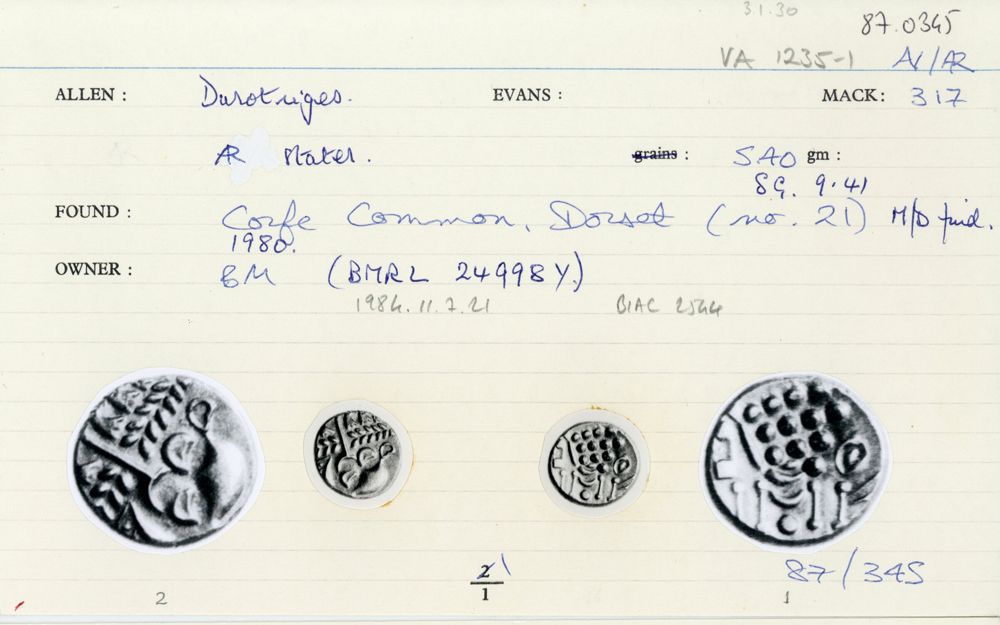 3.1.30
87.0345
VA 1235-1 AV/AR
ALLEN : Durotriges. EVANS : MACK: 317
AR Stater. grains : 5.40 gm :
SG. 9.41
FOUND : Corfe Common, Dorset (no. 21) M/D find.
1980.
OWNER : BM (BMRL 24998Y)
1984.11.7.21 BIAC 2544
2 1
1
87/345
2 1